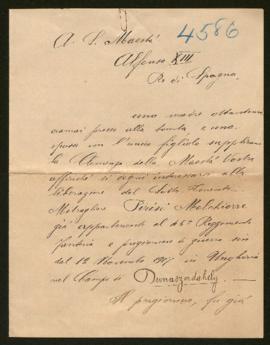 4586
A S. Maestà
Alfonso XIII
Re di Spagna.
una madre ottantenne
ormai presso alla tomba, e una
sposa con l'unico figliolo supplicano
la Clemenza della Maestà Vostra
affinchè si degni interessarsi alla
liberazione del Sotto Tenente
Mitragliere Melchiorre
già appartenente al 45° Reggimento
fanteria e prigioniero di guerra sin
dal 12 Novembre 1917 in Ungheria
nel Campo di Dunaszerdahely.
Il prigioniero, fu già